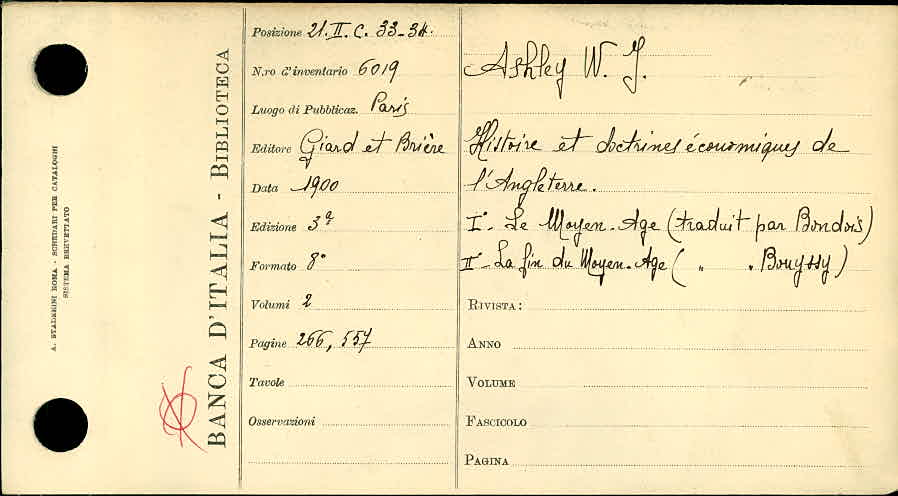 A. STADERINI ROMA - SCHEDARI PER CATALOGHI
SISTEMA BREVETTATO
BANCA D'ITALIA - BIBLIOTECA
Posizione 21. II. C. 33-34.
N.ro d'inventario 6019
Luogo di Pubblicaz. Paris
Editore Giard et Brière
Data 1900
Edizione 3ª
Formato 8°
Volumi 2
Pagine 266, 557
Tavole
Osservazioni
Ashley W. J.
Histoire et doctrines économiques de
l'Angleterre.
I° - Le Moyen-Age (traduit par Bondois)
II° - La fin du Moyen-Age ( " " Bouyssy)
RIVISTA:
ANNO
VOLUME
FASCICOLO
PAGINA